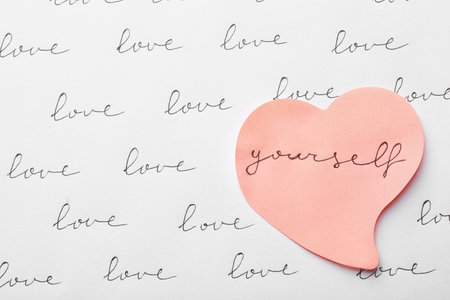 love love love
love love love love
love love love
love love yourself
love love
love love love love